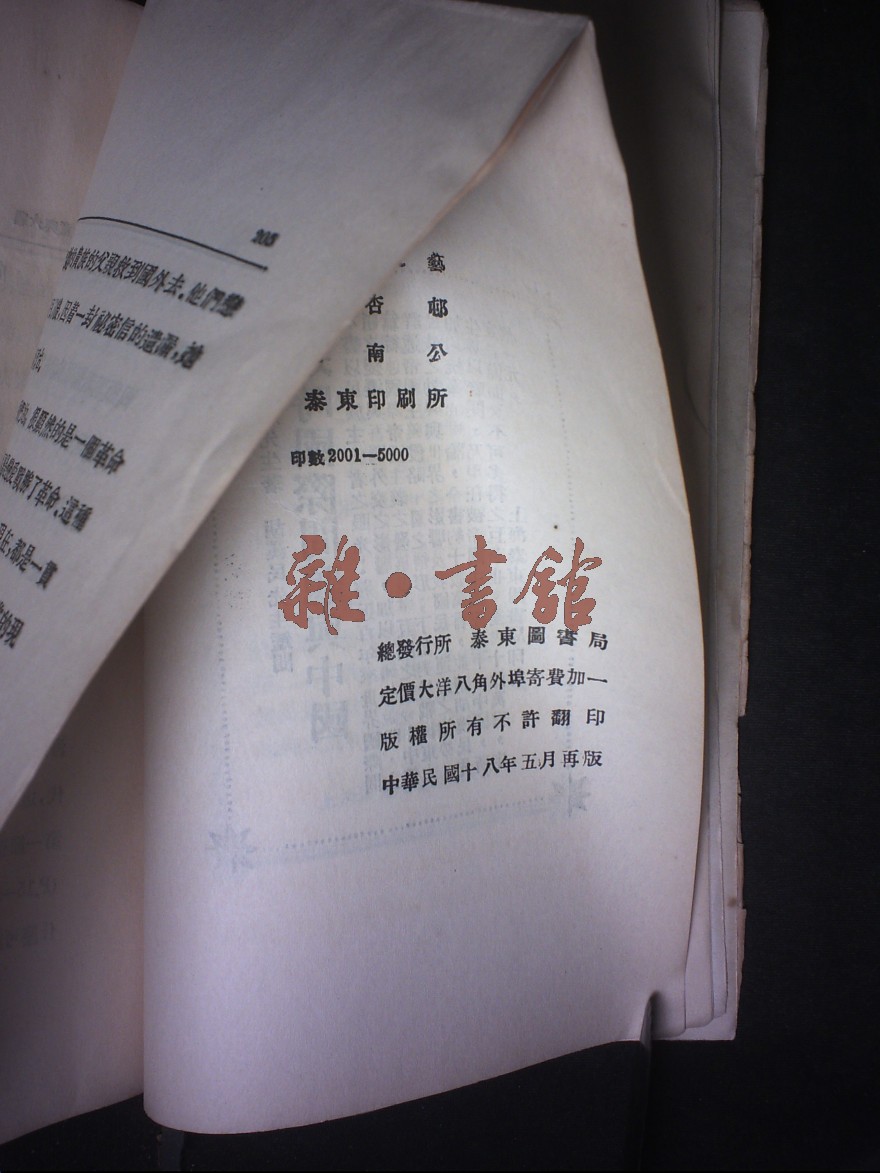 205
的父親救到國外去，他們戀
因着一封祕密信的遺漏，她
顯然的是一個革命
了革命，這種
都是一貫
的現
藝
杏邨
南公
泰東印刷所
印數2001—5000
雜·書館
總發行所 泰東圖書局
定價大洋八角外埠寄費加一
版權所有不許翻印
中華民國十八年五月再版